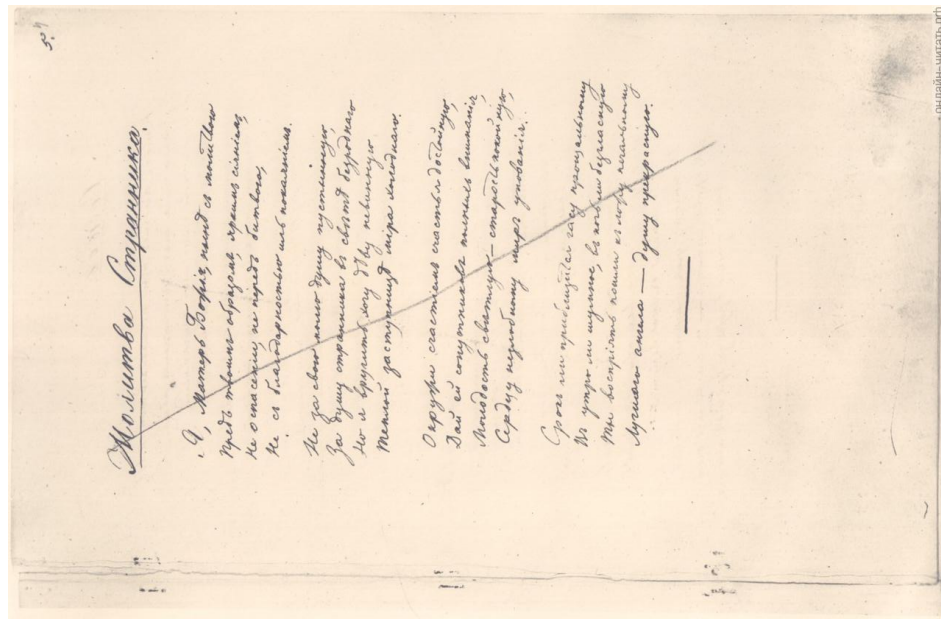 5.
Молитва Странника.
Я, Матерь Божія, нынѣ съ молитвою
Предъ твоимъ образомъ, яркимъ сіяніемъ,
Не о спасеніи, не передъ битвою,
Не съ благодарностью иль покаяніемъ.
Не за свою молю душу пустынную,
За душу странника въ свѣтѣ безроднаго
Но я вручить хочу дѣву невинную
Теплой заступницѣ міра холоднаго.
Окружи счастіемъ счастья достойную,
Дай ей сопутниковъ, полныхъ вниманія,
Молодость свѣтлую — старость покойную,
Сердцу незлобному миръ упованія.
Срокъ ли приблизится часу прощальному
Въ утро ли шумное, въ ночь ли безгласную
Ты воспріять пошли къ ложу печальному
Лучшаго ангела — душу прекрасную.
онлайн-читать.рф